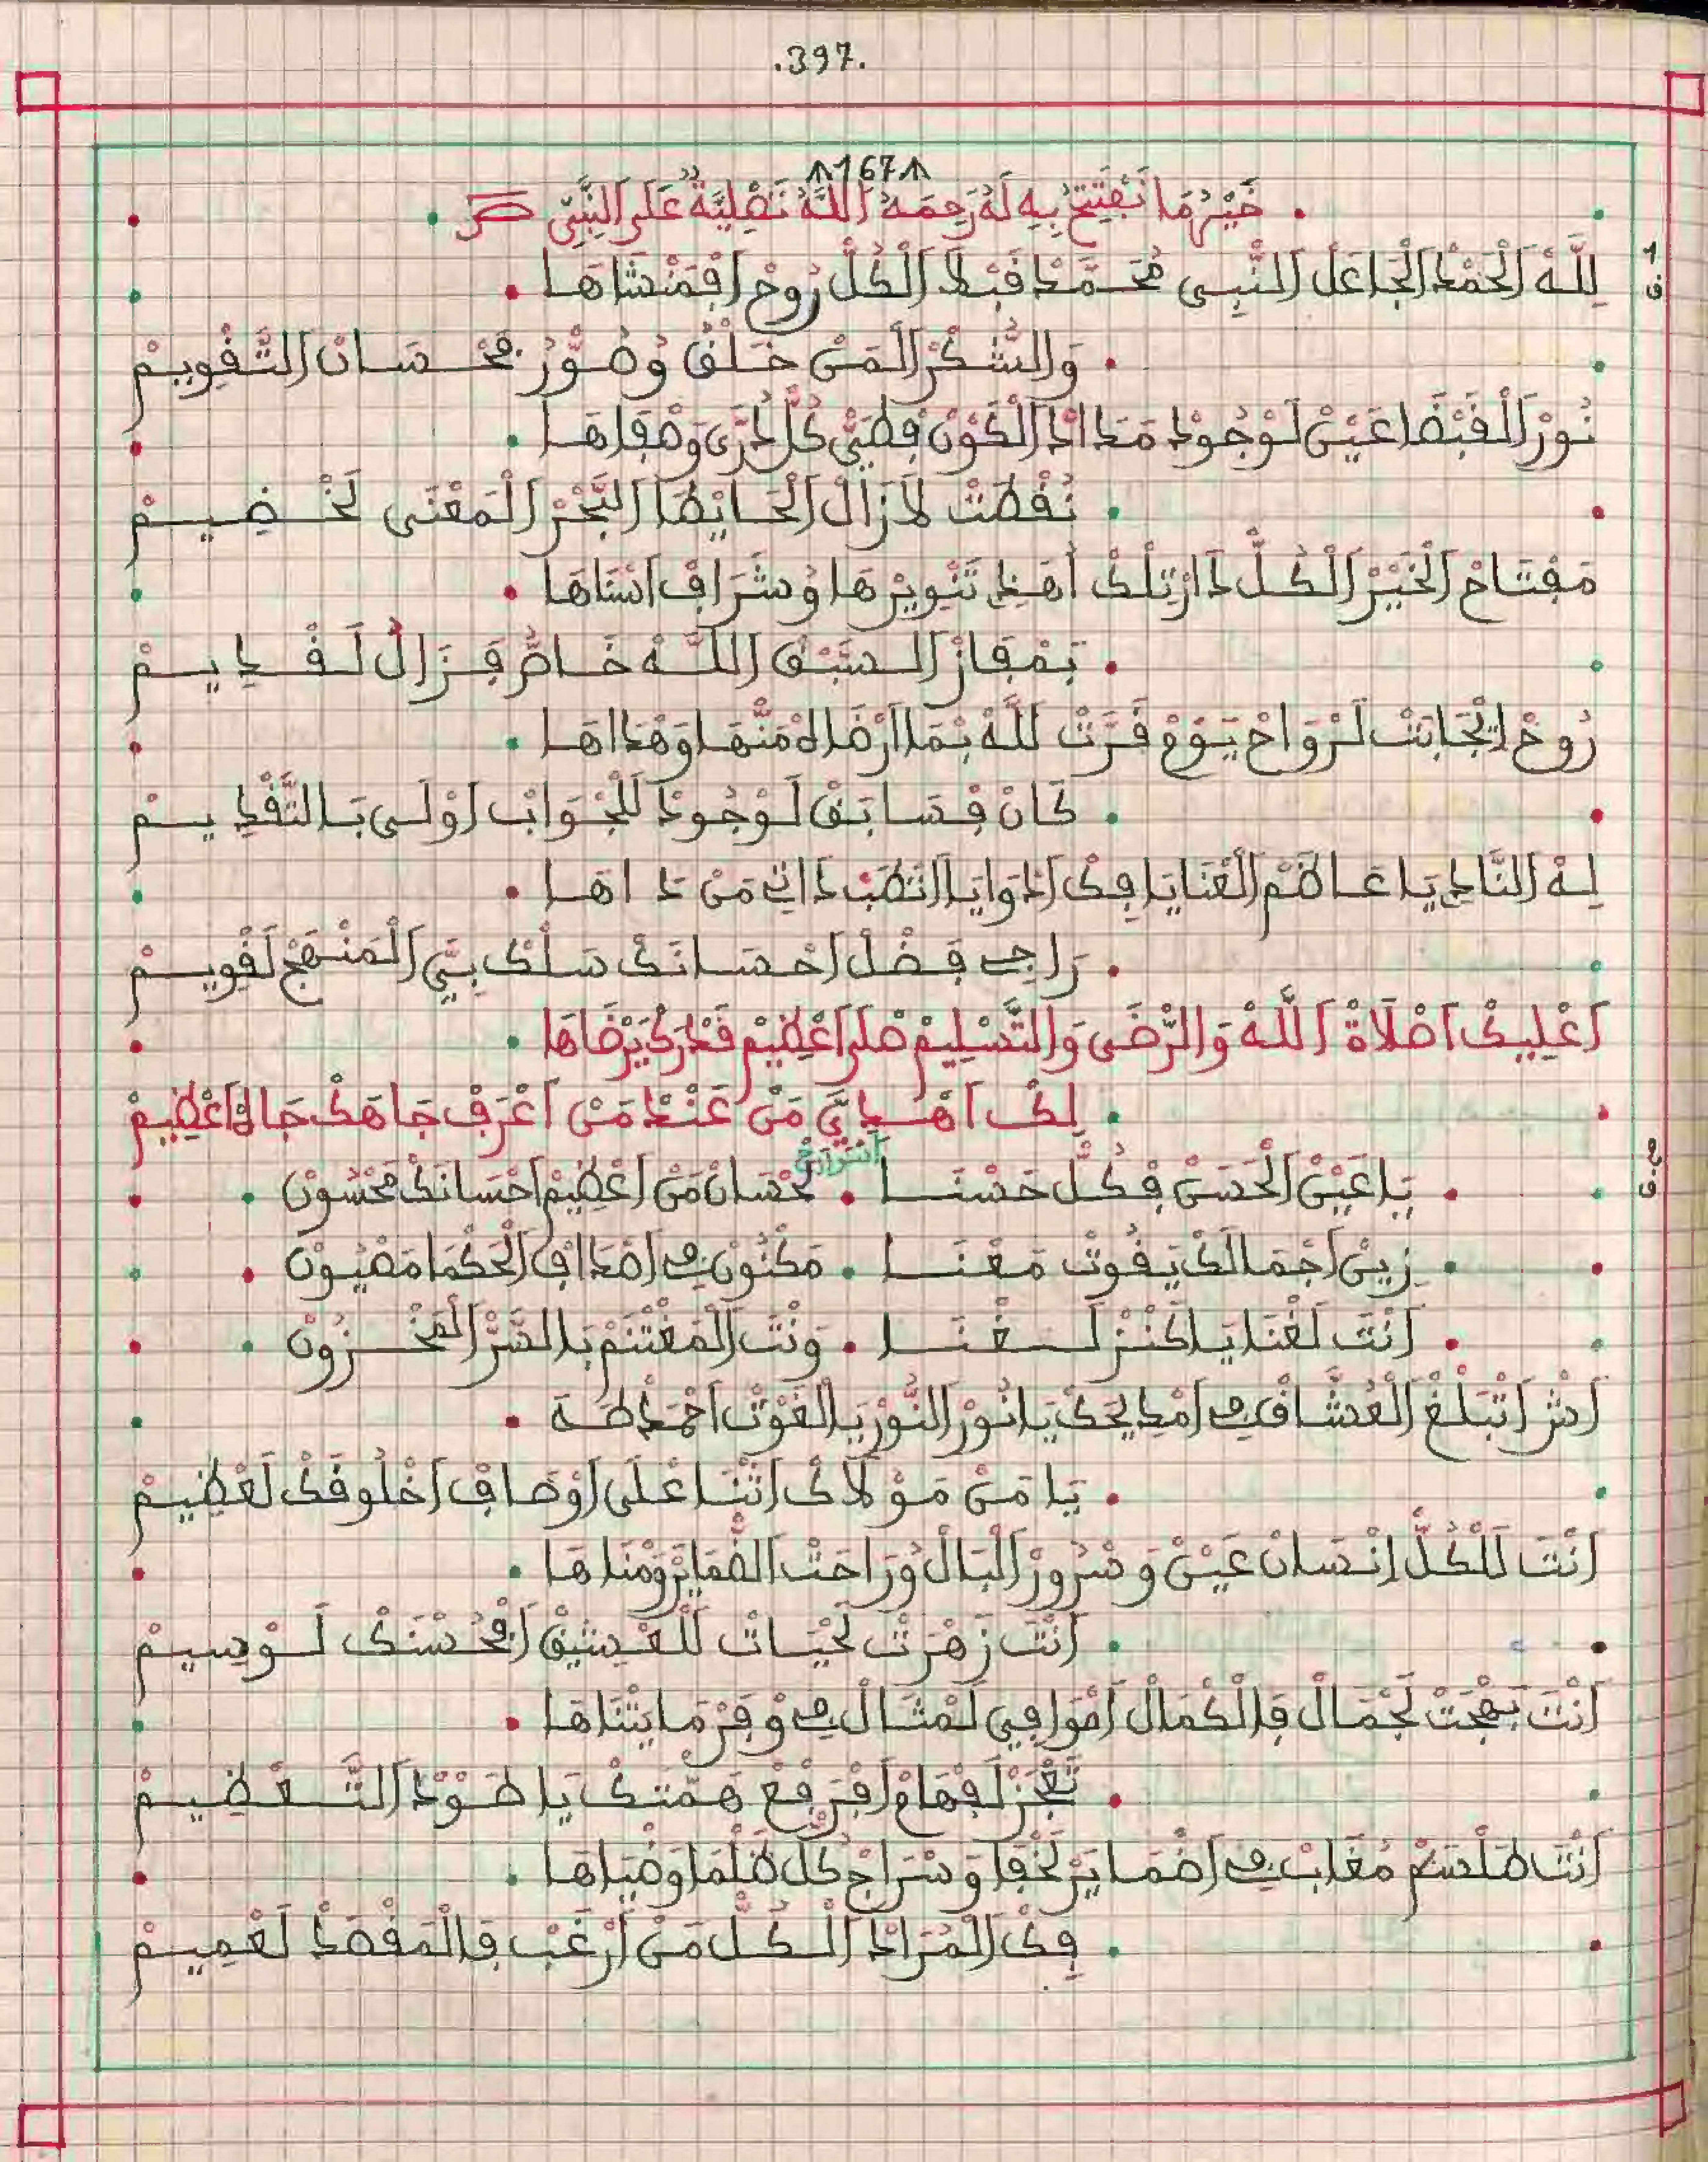 .397.
167
خَيْرُ مَا نَفْتَتِحُ بِهِ لَهُ رَحِمَهُ اللَّهُ تَصْلِيَّةٌ عَلَى النَّبِيّ
لِلَّهْ الْحَمْدْ الْجَاعَلْ النّْبِي مُحَمَّدْ قَبْلْ الْكُلّْ رُوحْ افْمَنْشَاهَا
وَالشُّكْرْ الْمَنْ خَلَقْ وُصَوَّرْ فحْسَانْ التَّقْوِيمْ
نُورْ الْقَبْضَا عَيْنْ لَوْجُودْ مَدَادْ الْكَوْنْ فطَيّْ كُلّْ دَرَّى وَصْفَاهَا
نُقْطَتْ لَازَالْ الْحَايْطَا الْبَحْرْ الْمَعْنَى لَخْضِيمْ
مَفْتَاحْ الْخَيْرْ الْكُلّْ دَارْتِلْكْ اهَدِ تَنْوِيرْهَا وُشَرَافْ اسْنَاهَا
بَمْفَازْ السَبْقْ اللَّهْ خَاصُّ فَزَالْ لَقْدِيمْ
رُوحْ انْجَابَتْ لَرْوَاحْ يَوْمْ قَرَّتْ للَّهْ بْمَا ارْضَاهْ مَنّْهَا وَهْدَاهَا
كَانْ فْسَابَقْ لَوْجُودْ لَلْجْوَابْ اوْلَى بَالتَّقْدِيمْ
لِهْ النَّادِ يَا عَاظَمْ الْعْنَايَا فِكْ ادْوَايَا انْطَبْ دَاتِي مَنْ دَاهَا
رَاجِي فَضْلْ احْسَانَكْ سَلْكْ بِيَّ الْمَنْهَجْ لَقْوِيمْ
اعْلِيكْ اصْلَاةْ اللَّهْ وَالرّْضَى وَالتَّسْلِيمْ صْلَا اعْظِيمْ قَدْرَكْ يَرْضَاهَا
لِكْ اهْدِيَّ مَنْ عَنْدْ مَنْ اعْرَفْ جَاهَكْ جَاهْ اعْظِيمْ
يَا عَيْنْ الْحَسَنْ فِكُلّْ حَسْنَا . لَحْسَانْ مَنْ اعْظِيمْ احْسَانَكْ مَحْسُونْ
زِينْ اجْمَالَكْ يَفُوتْ مَعْنَا . مَكْنُونْ فِي اصْدَافْ الْحَكْمَا مَصْيُونْ
انْتَ لَغْنَا يَا كَنْزْ لَغْنَا . وَنْتَ الْمَغْتَنَمْ بَالسَّرّْ الْمَخْزُونْ
اشْ اتْبَلْغْ الْعُشَّاقْ فِي امْدِيحَكْ يَا نُورْ النُّورْ يَا الْغَوْتْ احْمَدْ طَهَ
يَا مَنْ مَوْلَاكْ اتْنَا عْلَى اوْصَافْ اخْلُوقَكْ لَعْظِيمْ
انْتَ لَلْكُلّْ انْسَانْ عَيْنْ وَسْرُورْ الْبَالْ وُرَاحَتْ الضّْمَايَرْ وَمْنَاهَا
انْتَ زَهْرَتْ لَحْيَاتْ لَلْعْشِيقْ افْحُسْنَكْ لَوْسِيمْ
انْتَ بَهْجَتْ لَجْمَالْ فَالْكْمَالْ امْوَافِي لَمْثَالْ فِي وْفَرْ مَايَتْنَاهَا
تَعْجَزْ لَفْهَامْ افْرَفْعْ هَمّْتَكْ يَا طَوْدْ التَّعْظِيمْ
انْتَ طَلْسَمْ مُغَابْ فِي اضْمَايَرْ لَخْفَا وَسْرَاجْ كُلّْ ظَلْمَا وَضْيَاهَا
فِكْ الْمُرَادْ الْكُلّْ مَنْ ارْغَبْ فَالْمَقْصَدْ لَعْمِيمْ